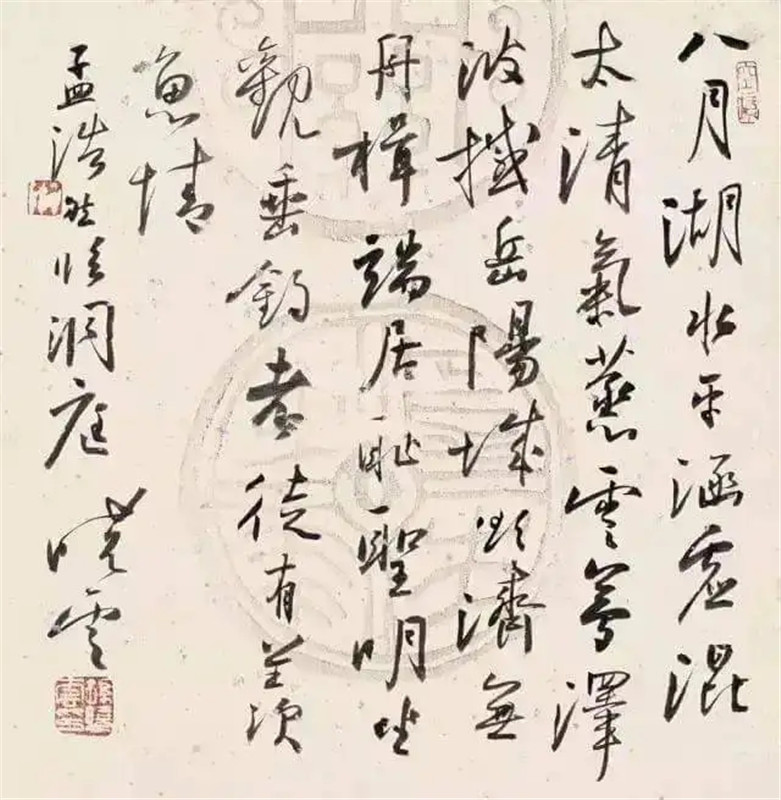 八月湖水平涵虛混
太清氣蒸雲夢澤
波撼岳陽城欲濟無
舟楫端居恥聖明坐
觀垂釣者徒有羨
魚情
孟浩然臨洞庭 曉雲